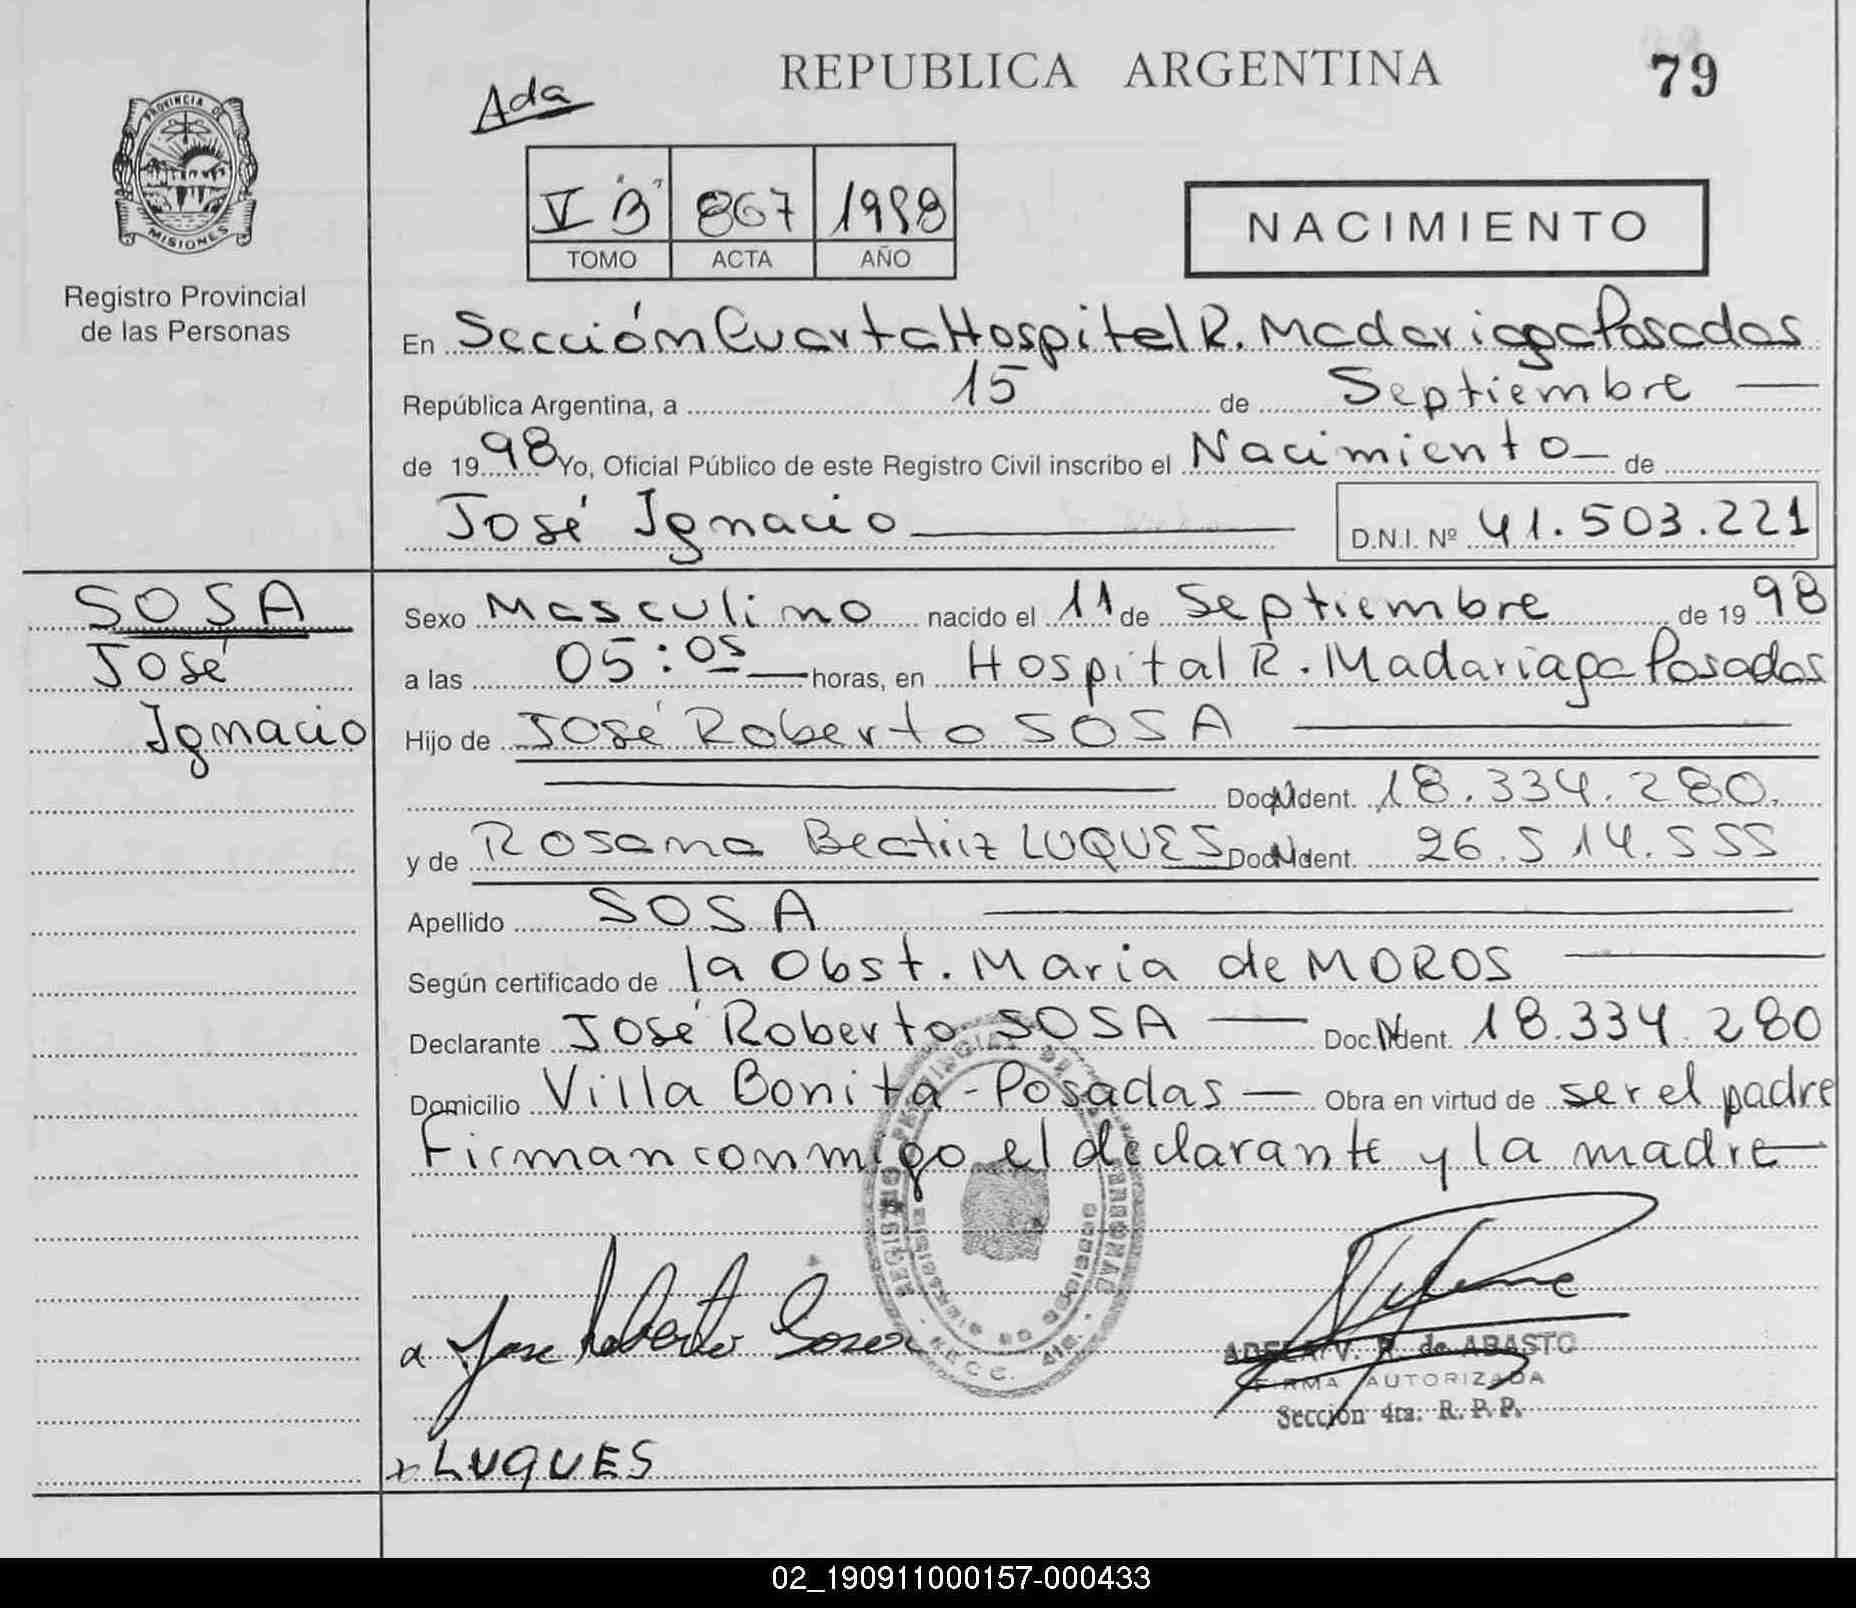 REPUBLICA ARGENTINA
79
Ada
PROVINCIA DE
MISIONES
Registro Provincial
de las Personas
V "B" 867 1998
TOMO ACTA AÑO
NACIMIENTO
En Sección Cuarta Hospital R. Madariaga Posadas
República Argentina, a 15 de Septiembre
de 1998 Yo, Oficial Público de este Registro Civil inscribo el Nacimiento de
José Ignacio D.N.I. Nº 41.503.221
SOSA
José
Ignacio
Sexo Masculino nacido el 11 de Septiembre de 1998
a las 05:05 horas, en Hospital R. Madariaga Posadas
Hijo de José Roberto SOSA
Doc. Ident. 18.334.280.
y de Rosana Beatriz LUQUES Doc. Ident. 26.514.555
Apellido SOSA
Según certificado de la Obst. Maria de MOROS
Declarante José Roberto SOSA Doc. Ident. 18.334.280
Domicilio Villa Bonita - Posadas Obra en virtud de ser el padre
Firman conmigo el declarante y la madre
Jose Roberto Sosa
ADELA V. R. de ABASTO
FIRMA AUTORIZADA
Sección 4ta. R. P. P.
LUQUES
02_190911000157-000433